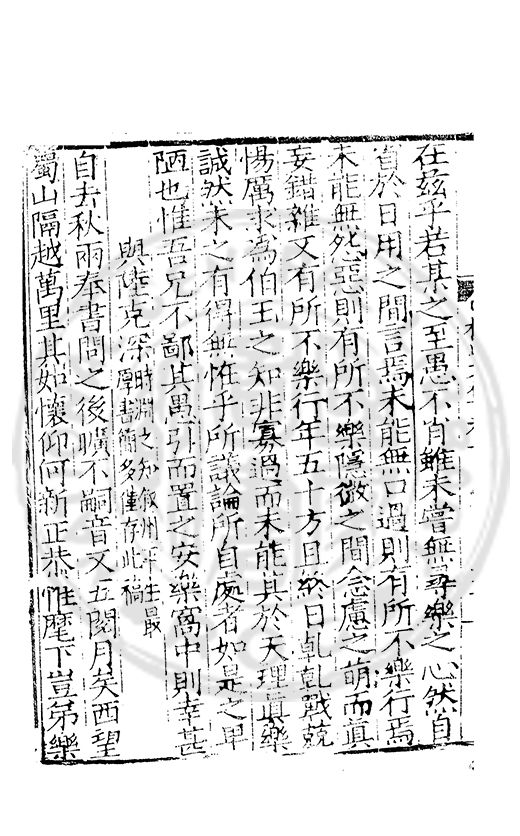 在茲乎若某之至愚不肖雖未嘗無尋樂之心然自
省於日用之間言焉未能無口過則有所不樂行焉
未能無怨惡則有所不樂隱微之間念慮之萌而眞
妄錯雜又有所不樂行年五十方且終日乹乹戰兢
惕厲求爲伯玉之知非寡過而未能其於天理眞樂
誠然未之有得無惟乎所議論所自處者如是之卑
陋也惟吾兄不鄙其愚引而置之安樂窩中則幸甚
與陸克深時淵之知叙州平生最
厚書簡多僅存此稿
自去秋雨奉書問之後曠不嗣音又五閱月矣西望
蜀山隔越萬里其如懷仰何新正恭惟麾下豈弟樂